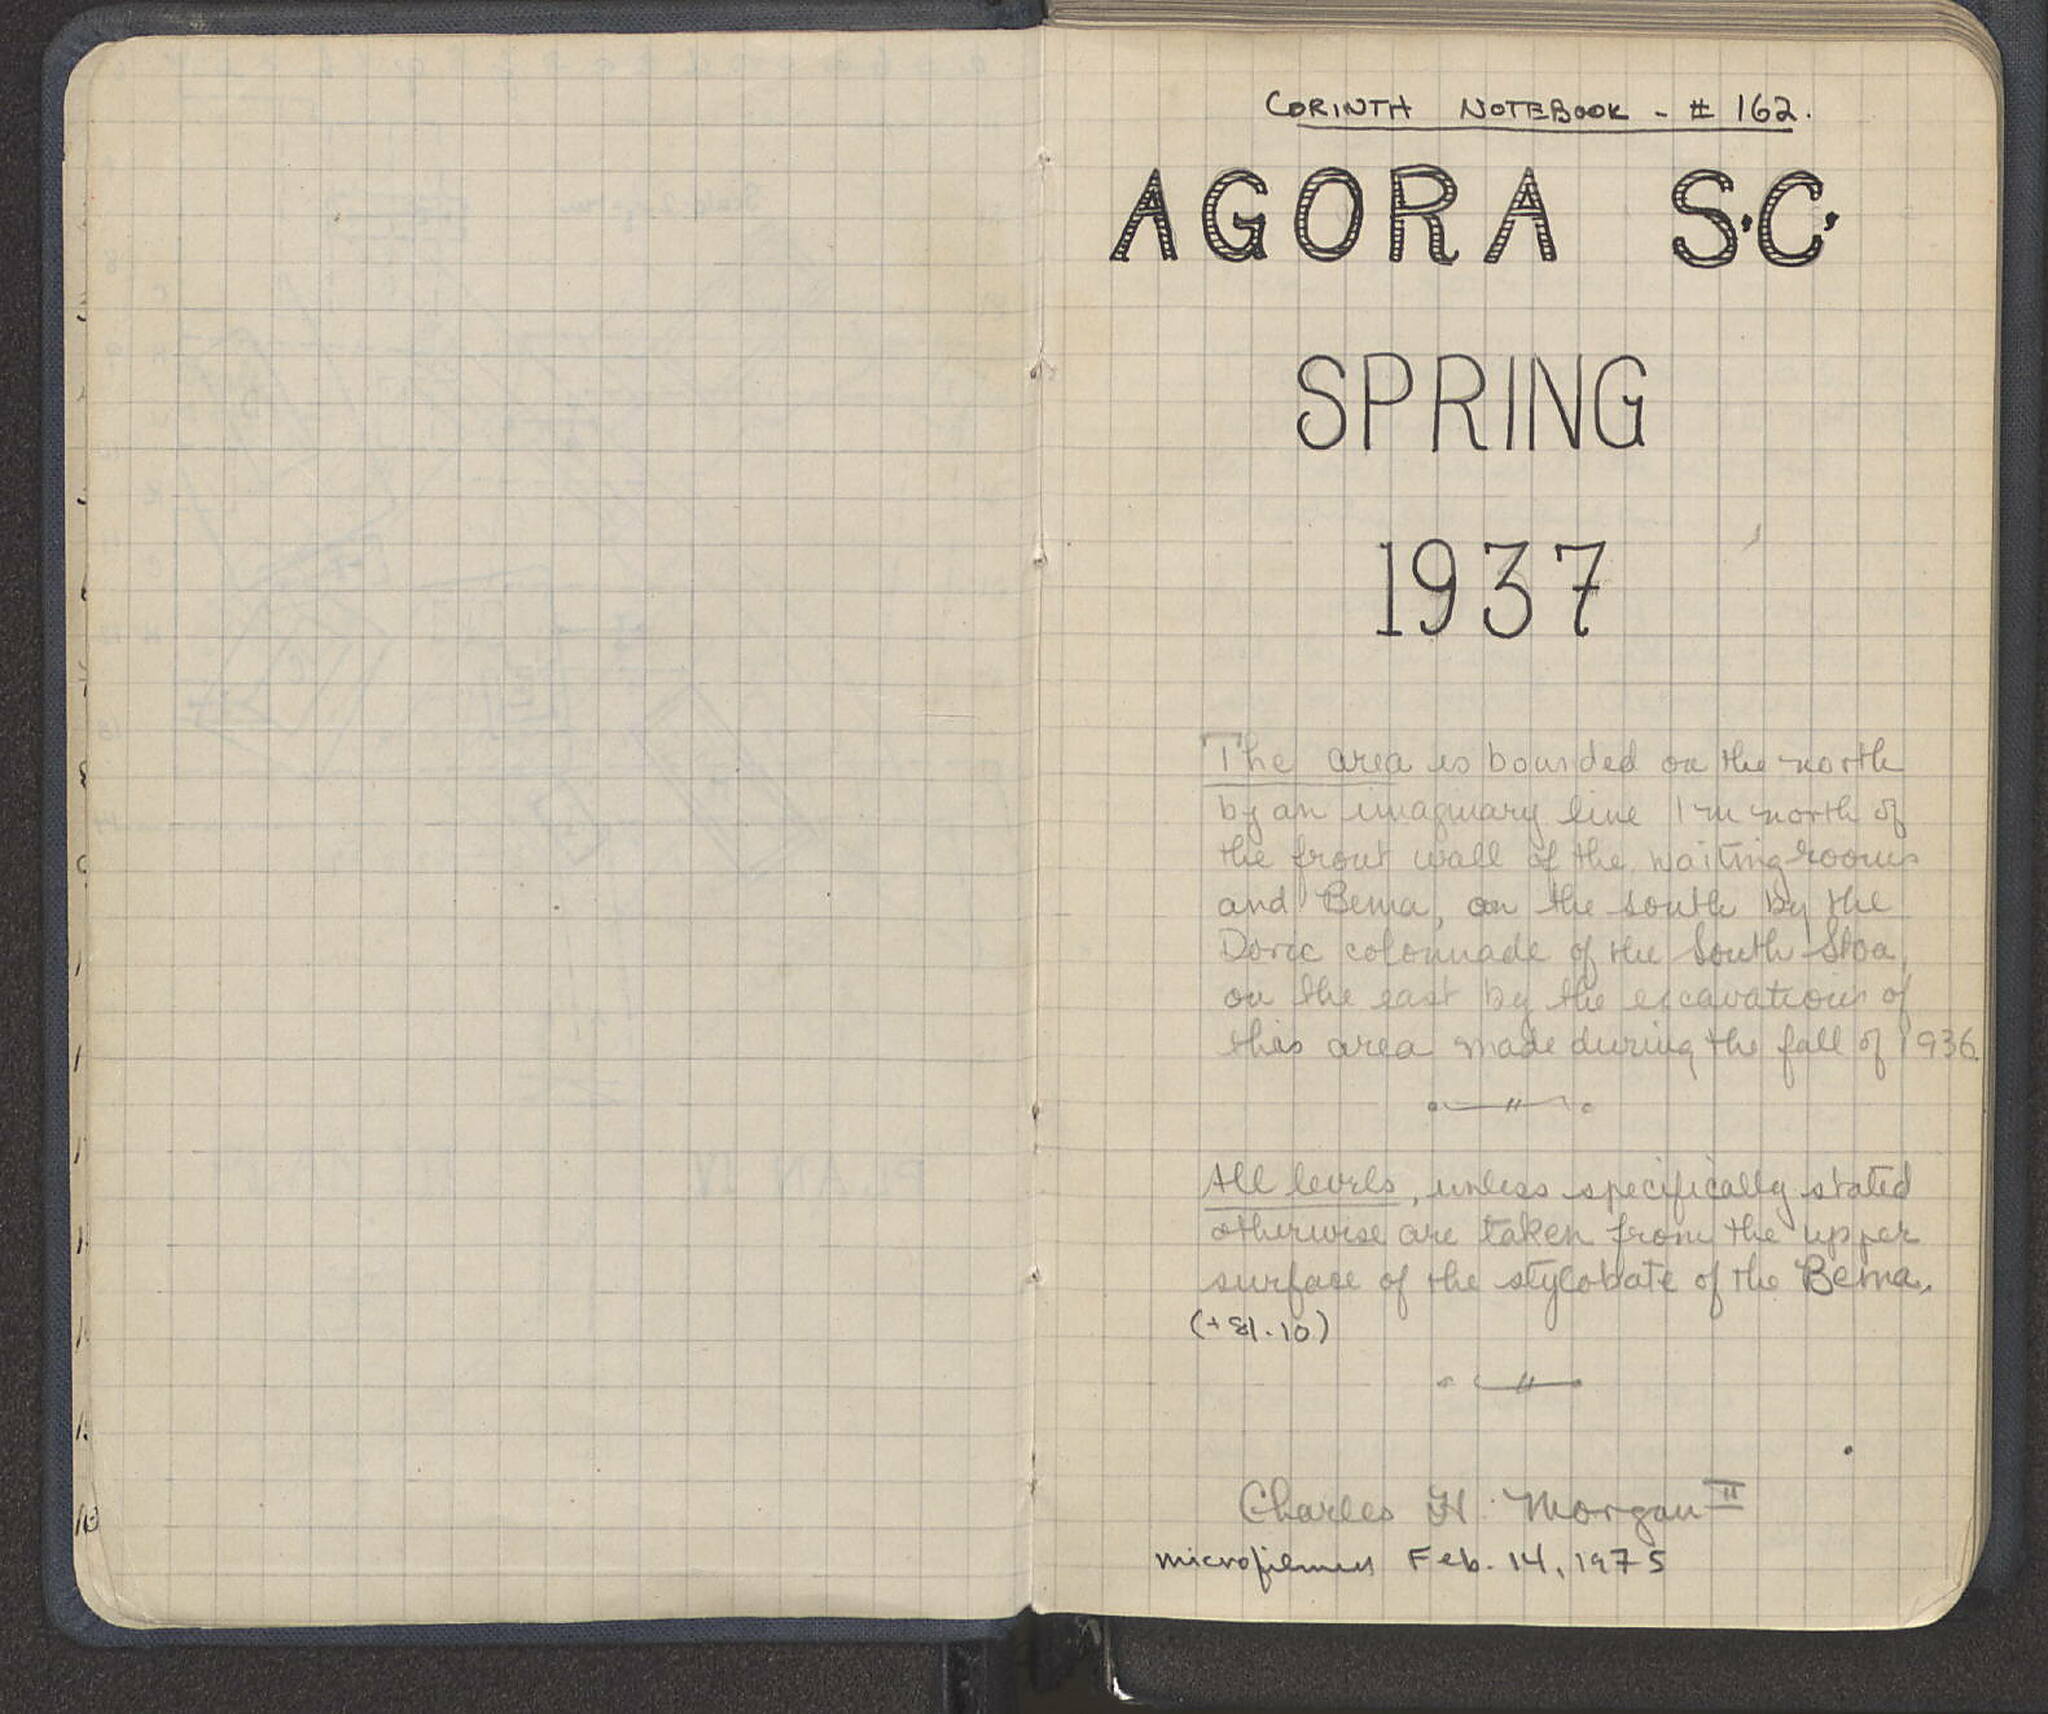 CORINTH NOTEBOOK - # 162.
AGORA S.C.
SPRING
1937
The area is bounded on the north
by an imaginary line 1 m north of
the front wall of the waiting rooms
and Bema, on the south by the
Doric colonnade of the South Stoa,
on the east by the excavations of
this area made during the fall of 1936.
All levels, unless specifically stated
otherwise are taken from the upper
surface of the stylobate of the Bema.
(+81.10)
Charles H. Morgan II
Feb. 14, 1975